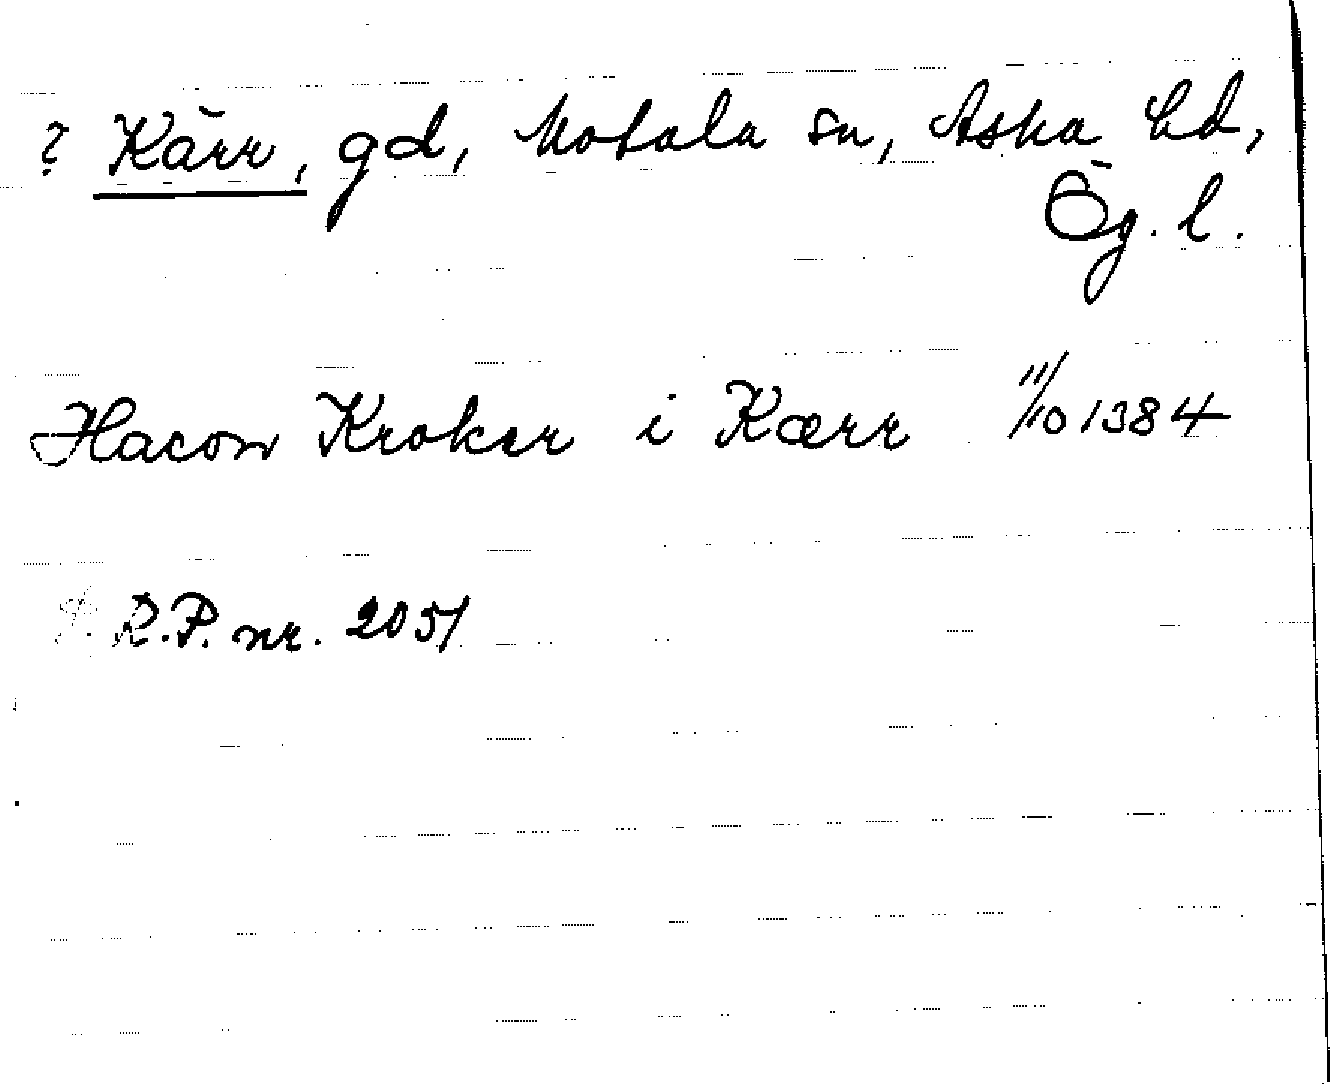 ? Kärr, gd, Motala sn, Aska hd,
Ög. l.
Hacon Kroker i Kærr 11/10 1384
R.P. nr. 2051